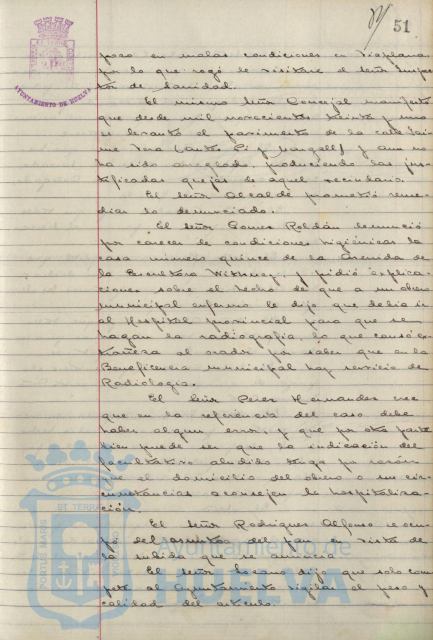 51
AYUNTAMIENTO DE HUELVA
pozo en malas condiciones en Viaplana
por lo que rogó se visitara el Señor Inspec
tor de Sanidad.
El mismo Señor Concejal manifestó
que desde mil novecientos treinta y uno
se levantó el pavimento de la calle Jai
me Vera (antes Pi y Margall) y aun no
ha sido arreglado, produciendo las jus
tificadas quejas de aquel vecindario.
El Señor Alcalde prometió reme
diar lo denunciado.
El Señor Gomez Roldán denunció
por carecer de condiciones higiénicas la
casa número quince de la Avenida de
la Escultora Withney, y pidió explica
ciones sobre el hecho de que a un obrero
municipal enfermo le dijo que debía ir
al Hospital provincial para que se
hagan la radiografía, lo que causó ex
trañeza al orador por saber que en la
Beneficencia municipal hay servicio de
Radiología.
El Señor Perez Hernandez cree
que en la referencia del caso debe
haber algun error, y que por otra parte
bien puede ser que la indicación del
facultativo aludido tenga por razón
que el domicilio del obrero o sus cir
cunstancias aconsejen la hospitaliza
ción.
El Señor Rodriguez Alfonso se ocu
pó del asunto del pan en vista de
la subida que se anuncia.
El Señor Lozano dijo que solo com
pete al Ayuntamiento vigilar el peso y
calidad del artículo.
PORTUS MARIS
ET TERRAE
Ayuntamiento de
HUELVA